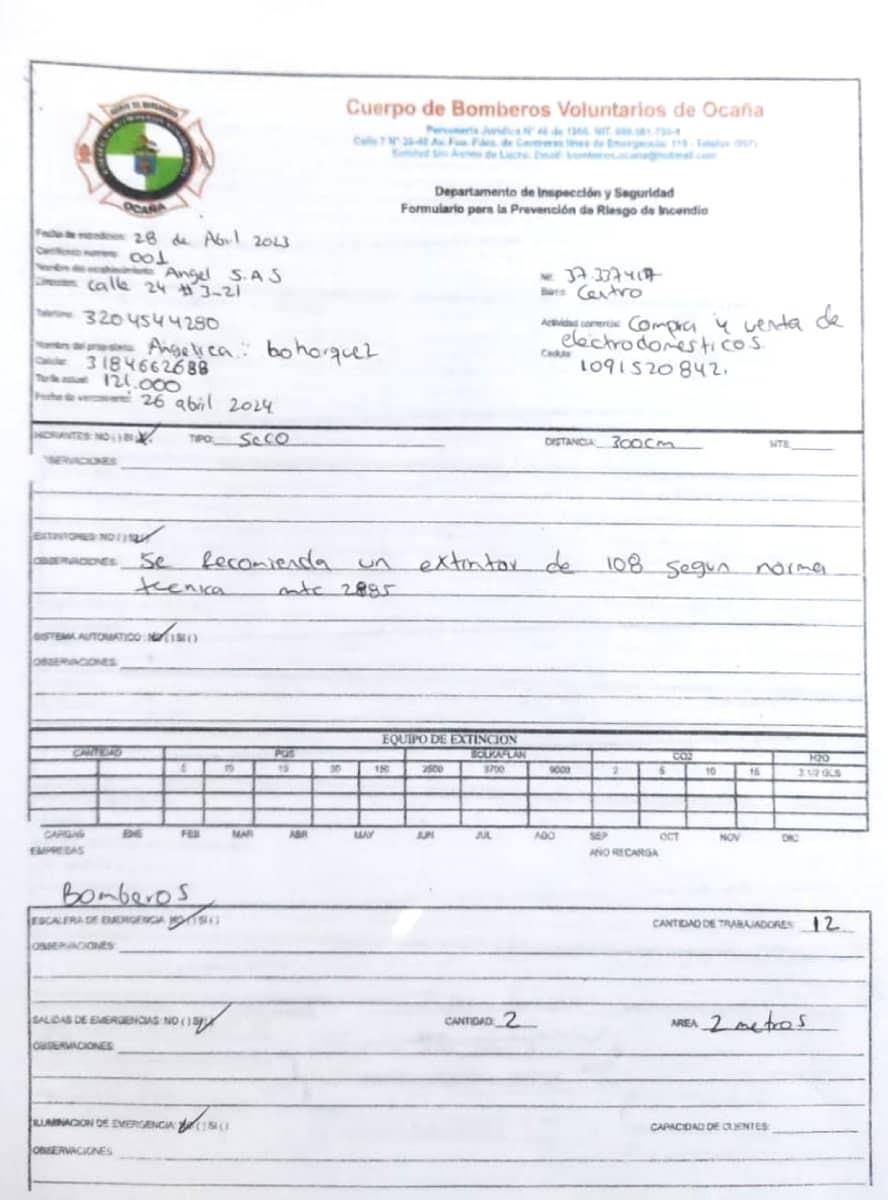 CUERPO DE BOMBEROS VOLUNTARIOS
OCAÑA
Cuerpo de Bomberos Voluntarios de Ocaña
Personería Jurídica Nº 46 de 1966. NIT.
Departamento de Inspección y Seguridad
Formulario para la Prevención de Riesgo de Incendio
Fecha de expedicion: 28 de Abril 2023
Certificado número: 001
Nombre del establecimiento: Angel S.A.S
Nit: 37.337417
Direccion: calle 24 # 3-21
Barrio: Centro
Telefono: 3204544280
Actividad comercial: Compra y venta de
electrodomesticos.
Nombre del propietario: Angelica: bohorquez
Celular: 3184662688
Cedula: 1091520842.
Tarifa actual: 121.000
Fecha de vencimiento: 26 abril 2024
HIDRANTES: NO ( ) SI TIPO: Seco DISTANCIA: 300cm MTS
OBSERVACIONES:
EXTINTORES: NO ( ) SI
OBSERVACIONES: Se Recomienda un extintor de 108 segun norma
tecnica mtc 2885
SISTEMA AUTOMATICO: NO ( ) SI ( )
OBSERVACIONES:
EQUIPO DE EXTINCION
CANTIDAD PQS SOLKAFLAN CO2 H2O
5 10 15 30 150 2500 3700 9000 2 5 10 15 2 1/2 GLS
CARGAS ENE FEB MAR ABR MAY JUN JUL AGO SEP OCT NOV DIC
EMPRESAS AÑO RECARGA
Bomberos
ESCALERA DE EMERGENCIA: NO ( ) SI ( ) CANTIDAD DE TRABAJADORES: 12
OBSERVACIONES:
SALIDAS DE EMERGENCIAS: NO ( ) SI CANTIDAD: 2 AREA: 2 metros
OBSERVACIONES:
ILUMINACION DE EMERGENCIA: NO ( ) SI ( ) CAPACIDAD DE CLIENTES:
OBSERVACIONES: